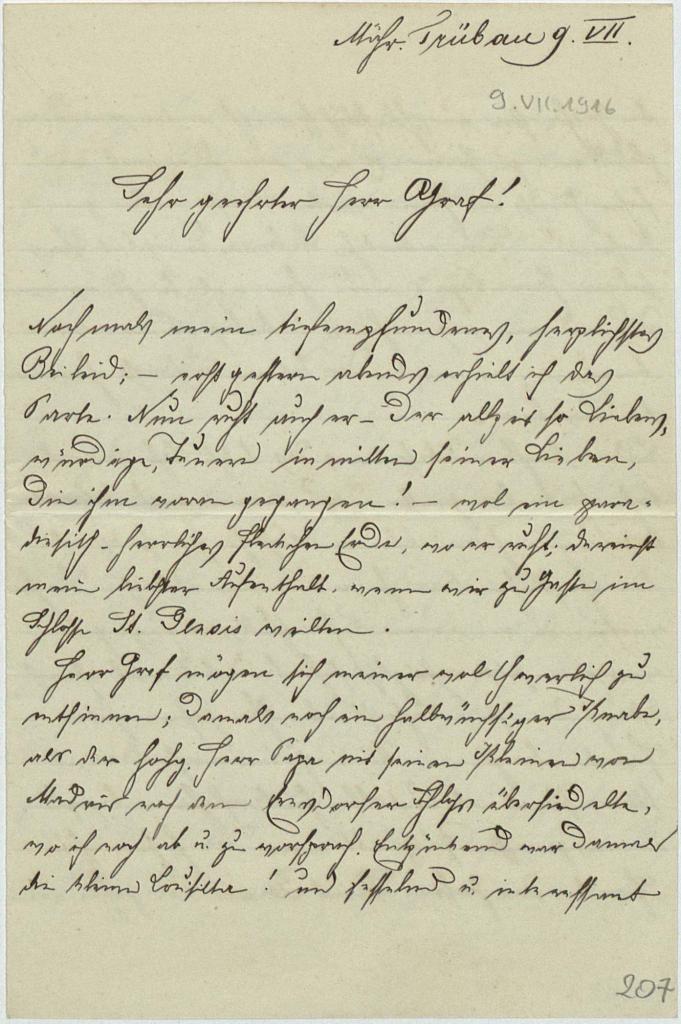 Mähr. Trübau 9. VII.
9. VII. 1916
Sehr geehrter Herr Graf!
Nochmals mein tiefempfundenes, herzlichstes
Beileid; – erst gestern abends erhielt ich das
Parte. Nun ruht auch er – der allzeit so liebens-
würdige, Teuere inmitten seiner Lieben,
die ihm voran gegangen! – wol ein para-
diesisch-herrliches Fleckchen Erde, wo er ruht; dereinst
mein liebster Aufenthalt, wenn wir zu Gaste im
Schlosse St. weilten.
Herr Graf mögen sich meiner wol schwerlich zu
entsinnen; damals noch ein halbwüchsiger Knabe,
als der hochg. Herr Papa mit seinen Kleinen von
Madrid nach dem Schloß übersiedelte,
wo ich noch ab u. zu vorsprach. Entzückend war damals
die kleine ! und fesselnd u. interessant
207